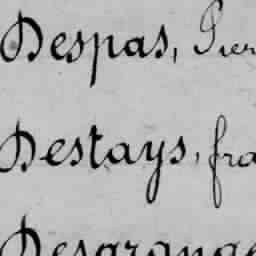 Despas, Pier
Destays, fra
Desgrange